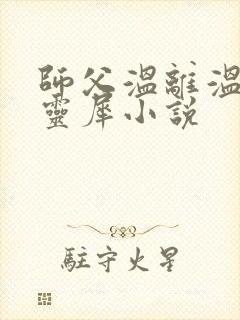 師父溫離溫
靈犀小說
駐守火星